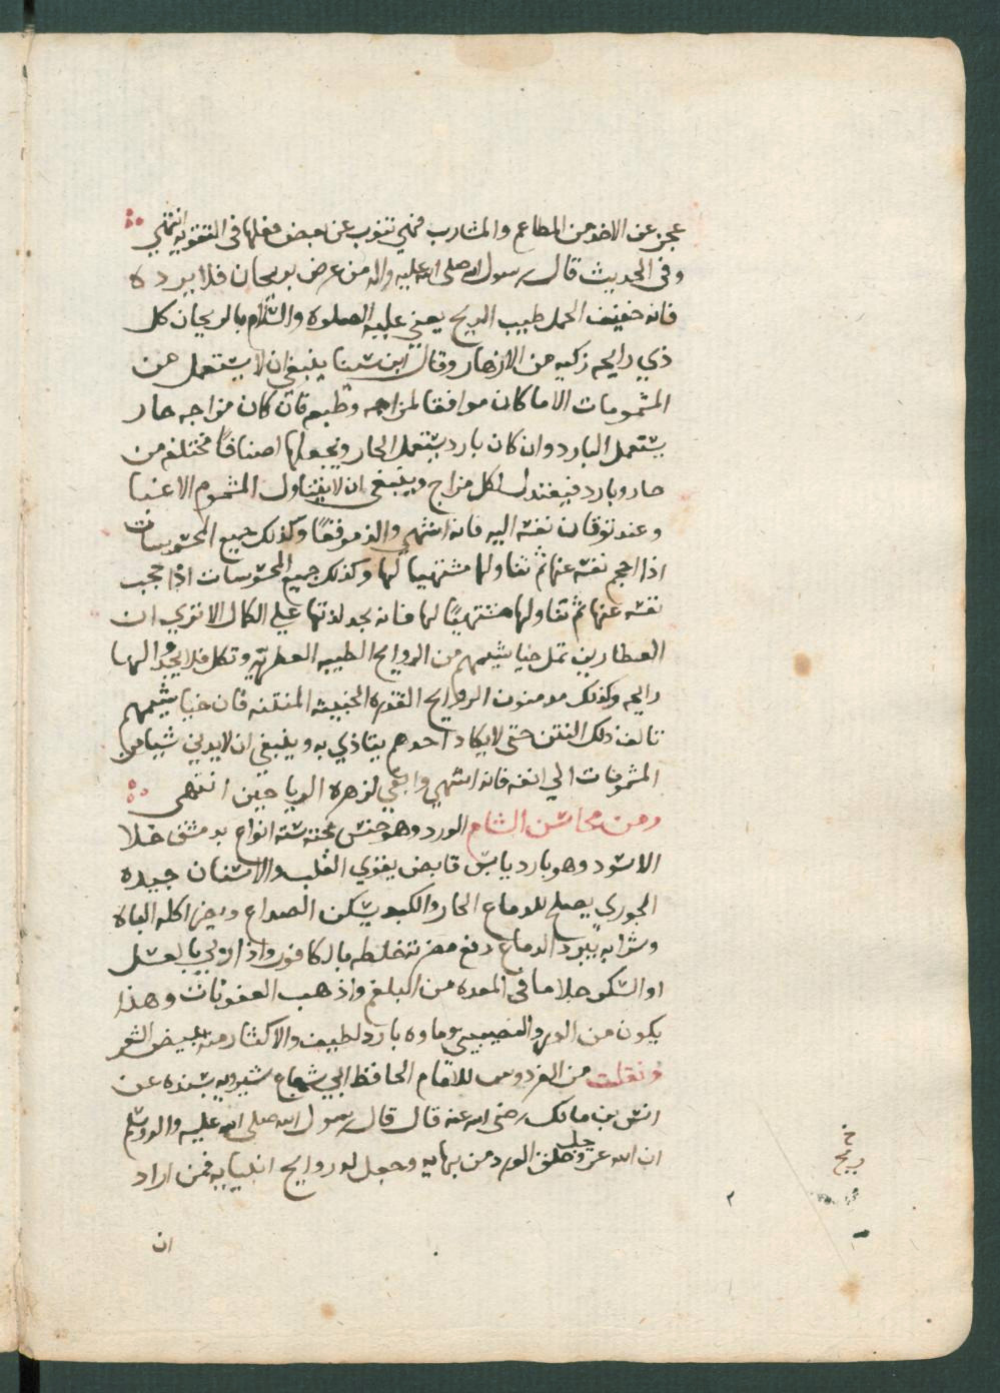 عجز عن الاخذ من المطاعم والمشارب فهي تنوب عن بعض فعلها في التقويه انتهي
وفى الحديث قال رسول الله صلى الله عليه واله من عرض بريحان فلا يرده
فانه خفيف الحمل طيب الريح يعني عليه الصلوه والسلام بالريحان كل
ذي رايحه زكيه من الازهار وقال ابن سينا ينبغي ان لا يستعمل من
المشمومات الا ما كان موافقا لمزاجه وطبعه فان كان مزاجه حار
يستعمل البارد وان كان بارد يستعمل الحار ويجعلها اصنافًا مختلفه من
حار وبارد فيعتدل لكل مزاج وينبغي ان لا يتناول المشموم الا غبا
وعند توقان نفسه اليه فانه اشهي والذ موقعًا وكذلك جميع المحسوسات
اذا احجم نفسه عنها ثم تناولها مشتهيا لها وكذلك جميع المحسوسات اذا حجب
نفسه عنها ثم تناولها مشتهيًا لها فانه يجد لذتها علي الكمال الا تري ان
العطارين تمل خياشيمهم من الروايح الطيبه العطريه وتكل فلا يجدوا لها
رايحه وكذلك مدمنون الروايح القذره الخبيثه المنتنه فان خياشيمهم
تالف ذلك النتن حتى لا يكاد احدهم يتاذي به وينبغي ان لا يدني شيا من
المشمومات الي انفه فانه اشهي وابقي لزهره الرياحين انتهى
ومن محاسن الشام الورد وهو جنس تحته سته انواع بدمشق خلا
الاسود وهو بارد يابس قابض يقوي القلب والاسنان جيده
الجوري يصلح للدماغ الحار والكبد يسكن الصداع ويضر اكله الباه
وشرابه يبرد الدماغ دفع مضرته خلطه بالكافور واذا ربي بالعسل
او السكر جلا ما فى المعده من البلغم واذهب العفونات وهذا
يكون من الورد النصيبيي وماوه بارد لطيف والاكثار منه يبيض الشعر
ونقلت من الفردوس للامام الحافظ ابي شجاع شيرويه بسنده عن
انس بن مالك رضى الله عنه قال قال رسول الله صلى الله عليه واله وسلم
ان الله عز وجل خلق الورد من بهايه وجعل له روايح انبيايه فمن اراد
ان
خ
ريح